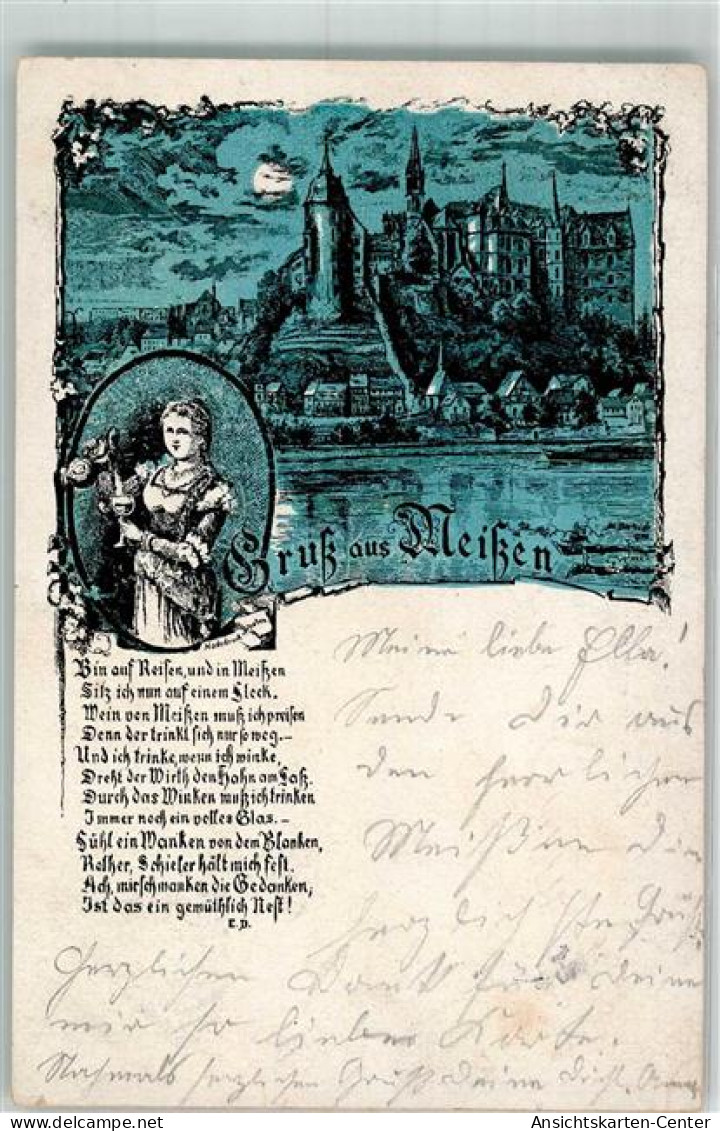 Gruß aus Meißen
Bin auf Reisen, und in Meißen
Sitz ich nun auf einem Fleck.
Wein von Meißen muß ich preisen
Denn der trinkt sich nur so weg. –
Und ich trinke, wenn ich winke,
Dreht der Wirth den Hahn am Faß.
Durch das Winken muß ich trinken
Immer noch ein volles Glas. –
Fühl ein Wanken von dem Blanken,
Rother, Schieler hält mich fest.
Ach, mir schwanken die Gedanken,
Ist das ein gemüthlich Nest!
E. D.
Meine liebe Ella!
Sende Dir aus
den herrlichen
Meißen die
herzlichsten Grüße
Herzlichen Dank für Deine
mir so lieber Karte.
Nochmals herzlichen Gruß Deine Dich
Ansichtskarten-Center